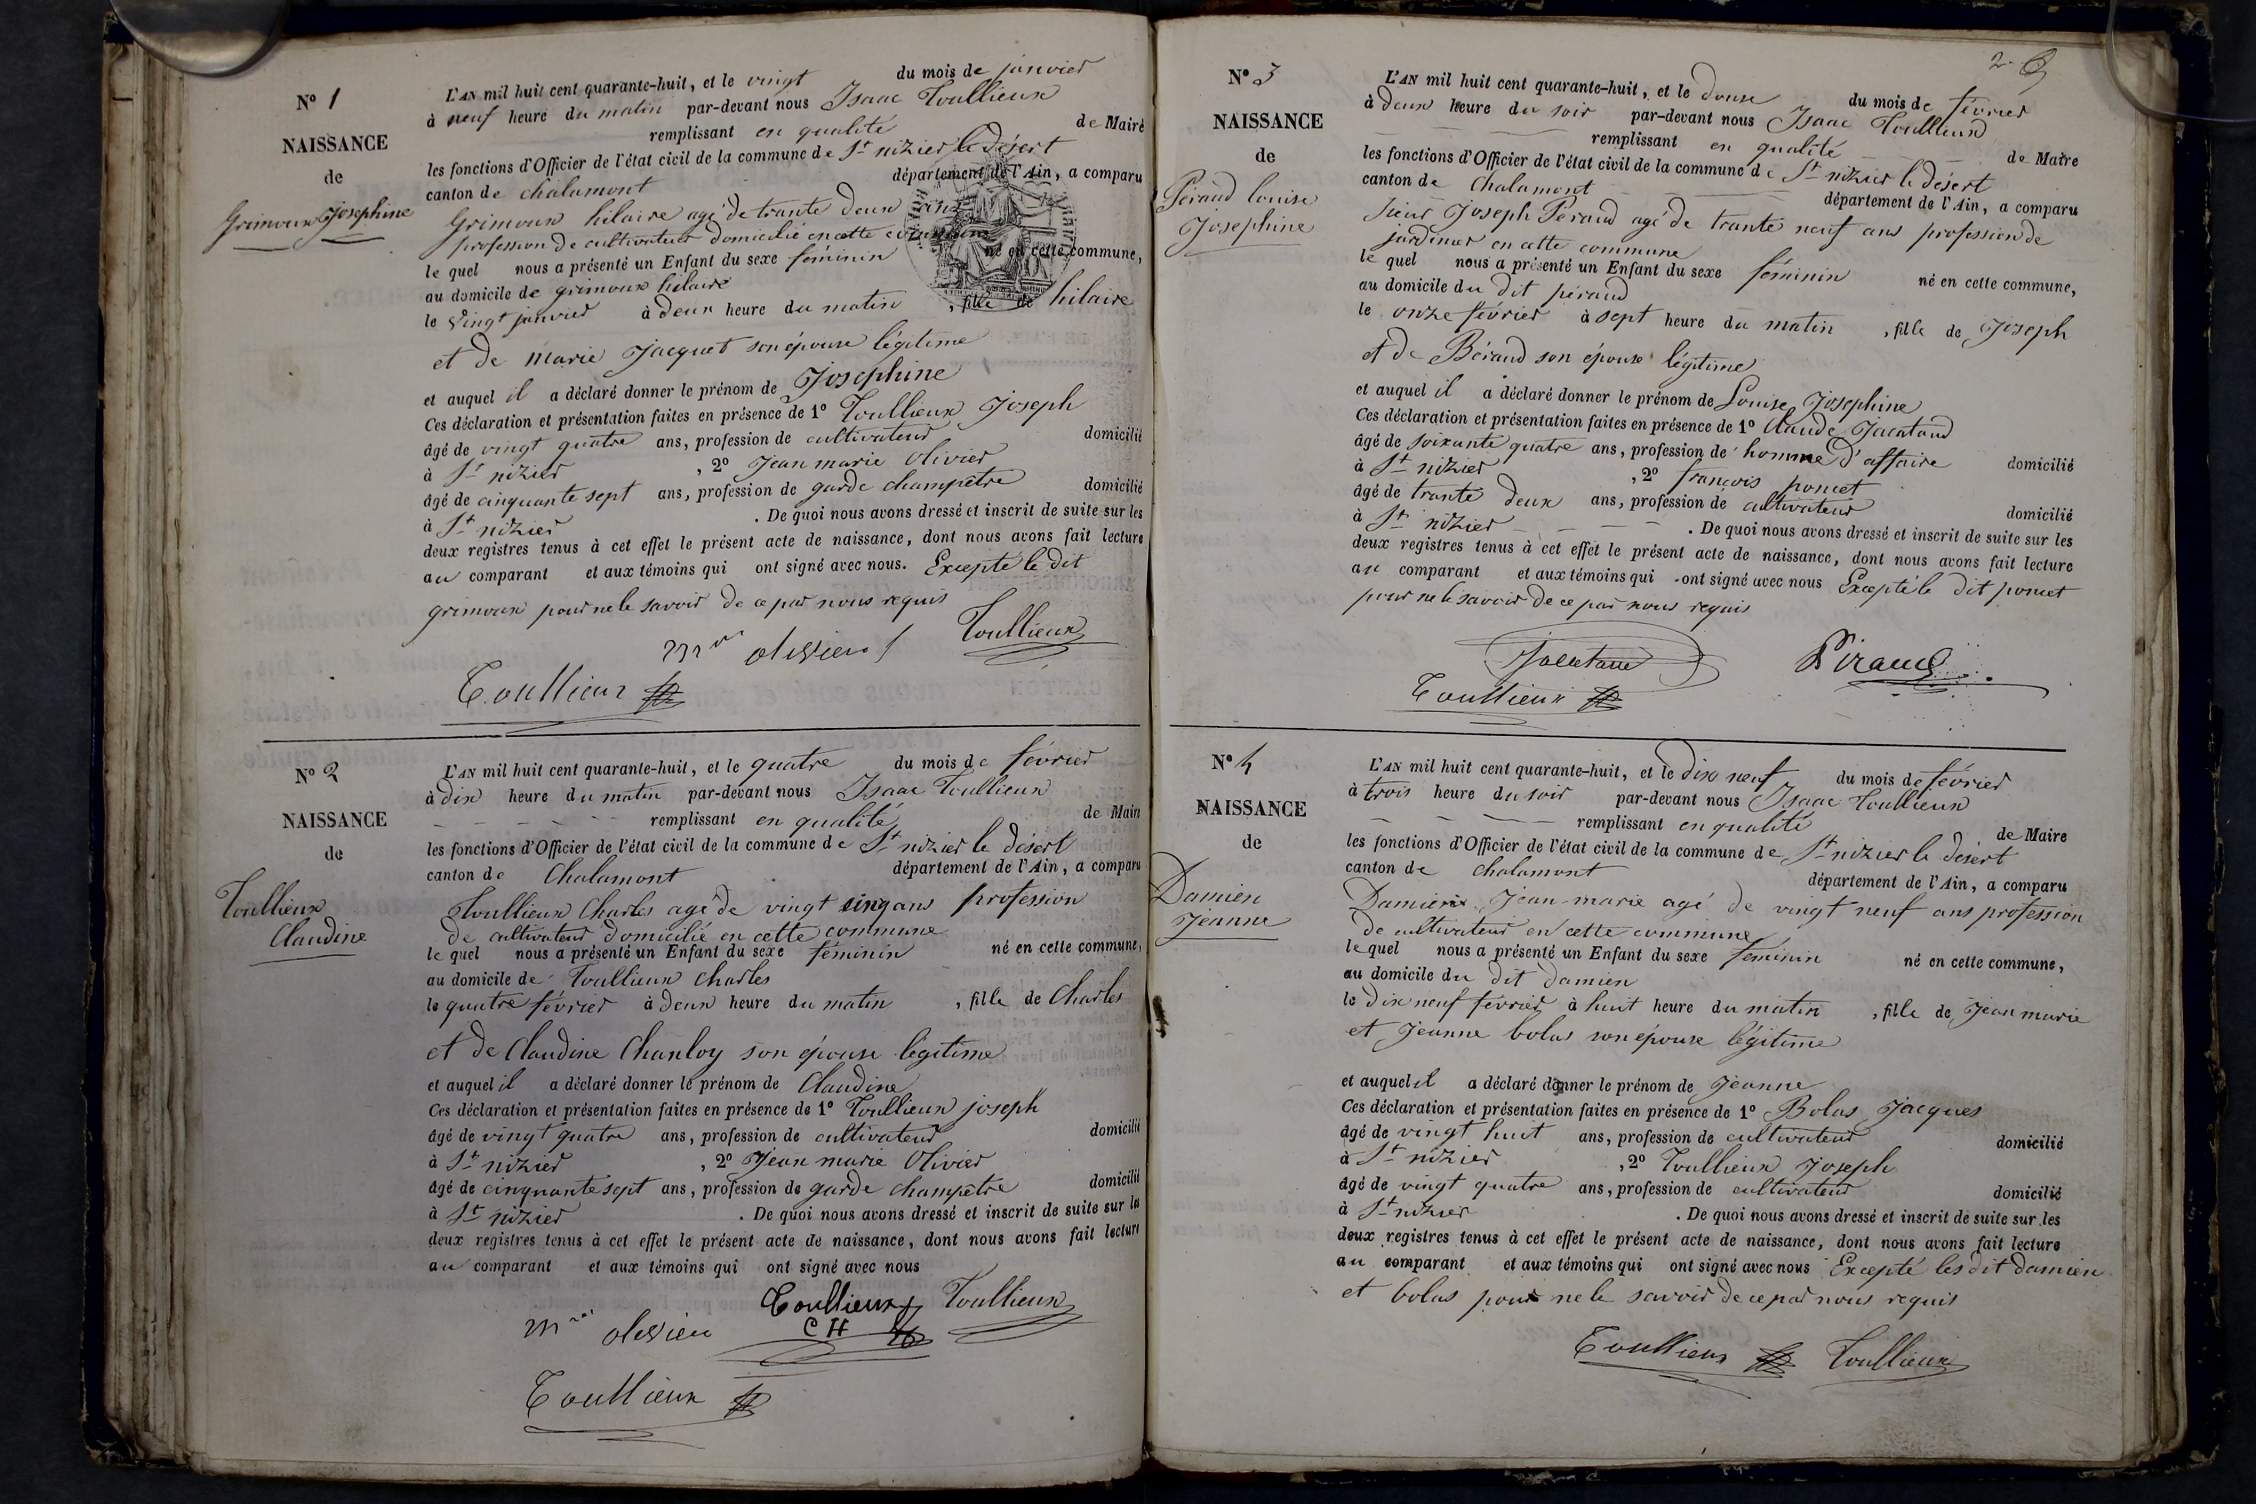 N° 1
NAISSANCE
de
Grimoux Josephine
L'AN mil huit cent quarante-huit, et le vingt du mois de janvier
à neuf heure du matin par-devant nous Isaac Toullieux
remplissant en qualité de Maire
les fonctions d'Officier de l'état civil de la commune de St nizier le désert
canton de chalamont département de l'Ain, a comparu
Grimoux hilaire agé de trante deux ans
profession de cultivateur domicilié en cette commune
le quel nous a présenté un Enfant du sexe féminin né en cette commune,
au domicile de grimoux hilaire
le vingt janvier à deux heure du matin , fille de hilaire
et de marie Jacquet son épouse légitime
et auquel il a déclaré donner le prénom de Josephine
Ces déclaration et présentation faites en présence de 1° Toullieux Joseph
âgé de vingt quatre ans, profession de cultivateur domicilié
à St nizier , 2° Jean marie Olivier
âgé de cinquante sept ans, profession de garde champetre domicilié
à St nizier . De quoi nous avons dressé et inscrit de suite sur les
deux registres tenus à cet effet le présent acte de naissance, dont nous avons fait lecture
au comparant et aux témoins qui ont signé avec nous. Excepté le dit
grimoux pour ne le savoir de ce par nous requis
mrie olivier Toullieux
Toullieux
N° 2
NAISSANCE
de
Toullieux
Claudine
L'AN mil huit cent quarante-huit, et le quatre du mois de février
à dix heure du matin par-devant nous Isaac Toullieux
remplissant en qualité de Maire
les fonctions d'Officier de l'état civil de la commune de St nizier le désert
canton de Chalamont département de l'Ain, a comparu
Toullieux Charles agé de vingt cinq ans profession
de cultivateur domicilié en cette commune
le quel nous a présenté un Enfant du sexe féminin né en cette commune,
au domicile de Toullieux Charles
le quatre février à deux heure du matin , fille de Charles
et de Claudine Chanloy son épouse légitime
et auquel il a déclaré donner le prénom de Claudine
Ces déclaration et présentation faites en présence de 1° Toullieux joseph
âgé de vingt quatre ans, profession de cultivateur domicilié
à St nizier , 2° Jean marie Olivier
âgé de cinquante sept ans, profession de garde champêtre domicilié
à St nizier . De quoi nous avons dressé et inscrit de suite sur les
deux registres tenus à cet effet le présent acte de naissance, dont nous avons fait lecture
au comparant et aux témoins qui ont signé avec nous
mrie olivier Toullieux CH Toullieux
Toullieux
2
N° 3
NAISSANCE
de
Péraud Louise
Josephine
L'AN mil huit cent quarante-huit, et le douze du mois de février
à deux heure du soir par-devant nous Isaac Toullieux
remplissant en qualité de Maire
les fonctions d'Officier de l'état civil de la commune de St nizier le désert
canton de Chalamont département de l'Ain, a comparu
sieur Joseph Peraud agé de trante neuf ans profession de
jardinier en cette commune
le quel nous a présenté un Enfant du sexe féminin né en cette commune,
au domicile du dit péraud
le onze février à sept heure du matin , fille de Joseph
et de Béraud son épouse légitime
et auquel il a déclaré donner le prénom de Louise Josephine
Ces déclaration et présentation faites en présence de 1° Claude Jacataud
âgé de soixante quatre ans, profession de homme d'affaire domicilié
à St nizier , 2° françois poncet
âgé de trante deux ans, profession de cultivateur domicilié
à St nizier . De quoi nous avons dressé et inscrit de suite sur les
deux registres tenus à cet effet le présent acte de naissance, dont nous avons fait lecture
au comparant et aux témoins qui ont signé avec nous Excepté le dit poncet
pour ne le savoir de ce par nous requis
Peraud
Toullieux
N° 4
NAISSANCE
de
Damien
Jeanne
L'AN mil huit cent quarante-huit, et le dix neuf du mois de février
à trois heure du soir par-devant nous Isaac Toullieux
remplissant en qualité de Maire
les fonctions d'Officier de l'état civil de la commune de St nizier le désert
canton de Chalamont département de l'Ain, a comparu
Damien Jean-marie agé de vingt neuf ans profession
de cultivateur en cette commune
le quel nous a présenté un Enfant du sexe féminin né en cette commune,
au domicile du dit Damien
le dix neuf février à huit heure du matin , fille de Jean marie
et Jeanne bolas son épouse légitime
et auquel il a déclaré donner le prénom de Jeanne
Ces déclaration et présentation faites en présence de 1° Bolas Jacques
âgé de vingt huit ans, profession de cultivateur domicilié
à St nizier , 2° Toullieux Joseph
âgé de vingt quatre ans, profession de cultivateur domicilié
à St nizier . De quoi nous avons dressé et inscrit de suite sur les
deux registres tenus à cet effet le présent acte de naissance, dont nous avons fait lecture
au comparant et aux témoins qui ont signé avec nous Excepté les dit damien
et bolas pour ne le savoir de ce par nous requis
Toullieux Toullieux